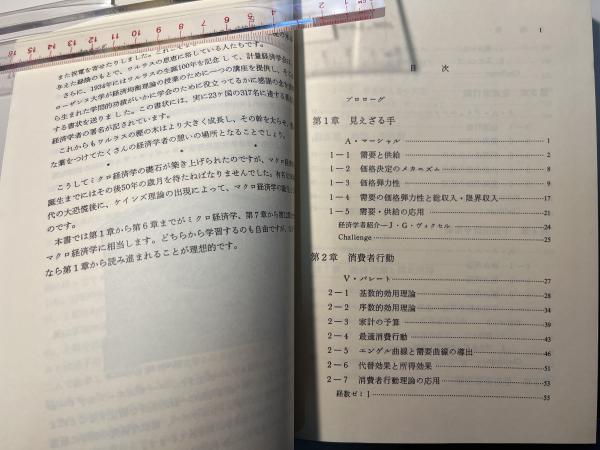 また祝電を寄せたりしました。これ
与えた縁隣のもとで、ワルラスの恩恵に浴している人たちです。
さらに、1934年にはワルラスの生誕100年を記念して、計量経済学会
ローザンヌ大学が経済均衡理論の授業のために一つの講座を提供し、そ
ら生まれた学問的功績がいかに学会のために役立ってるかに感謝の意を
する書状を送りました。この書状には、実に23ヶ国の317名に達する
経済学者の署名が記されています。
これからもワルラスの樫の木はより大きく成長し、その幹を太らせ、
な葉をつけてたくさんの経済学者の憩いの場所となることでしょう。
* * *
こうしてミクロ経済学の礎石が築き上げられたのですが、マクロ経済
誕生までにはその後50年の歳月を待たねばなりませんでした。有名な
代の大恐慌後に、ケインズ理論の出現によって、マクロ経済学の誕生
のです。
本書では第1章から第6章までがミクロ経済学、第7章から第
マクロ経済学に相当します。どちらから学習するのも自由ですが、
なら第1章から読み進まれることが理想的です。
1
目 次
プロローグ
第1章 見えざる手
A・マーシャル 1
1-1 需要と供給 2
1-2 価格決定のメカニズム 8
1-3 価格弾力性 9
1-4 需要の価格弾力性と総収入・限界収入 17
1-5 需要・供給の応用 21
経済学者紹介—J・G・ヴィクセル 24
Challenge 25
第2章 消費者行動
V・パレート 27
2-1 基数的効用理論 28
2-2 序数的効用理論 34
2-3 家計の予算 39
2-4 最適消費行動 43
2-5 エンゲル曲線と需要曲線の導出 46
2-6 代替効果と所得効果 51
2-7 消費者行動理論の応用 53
経数ゼミ I 55